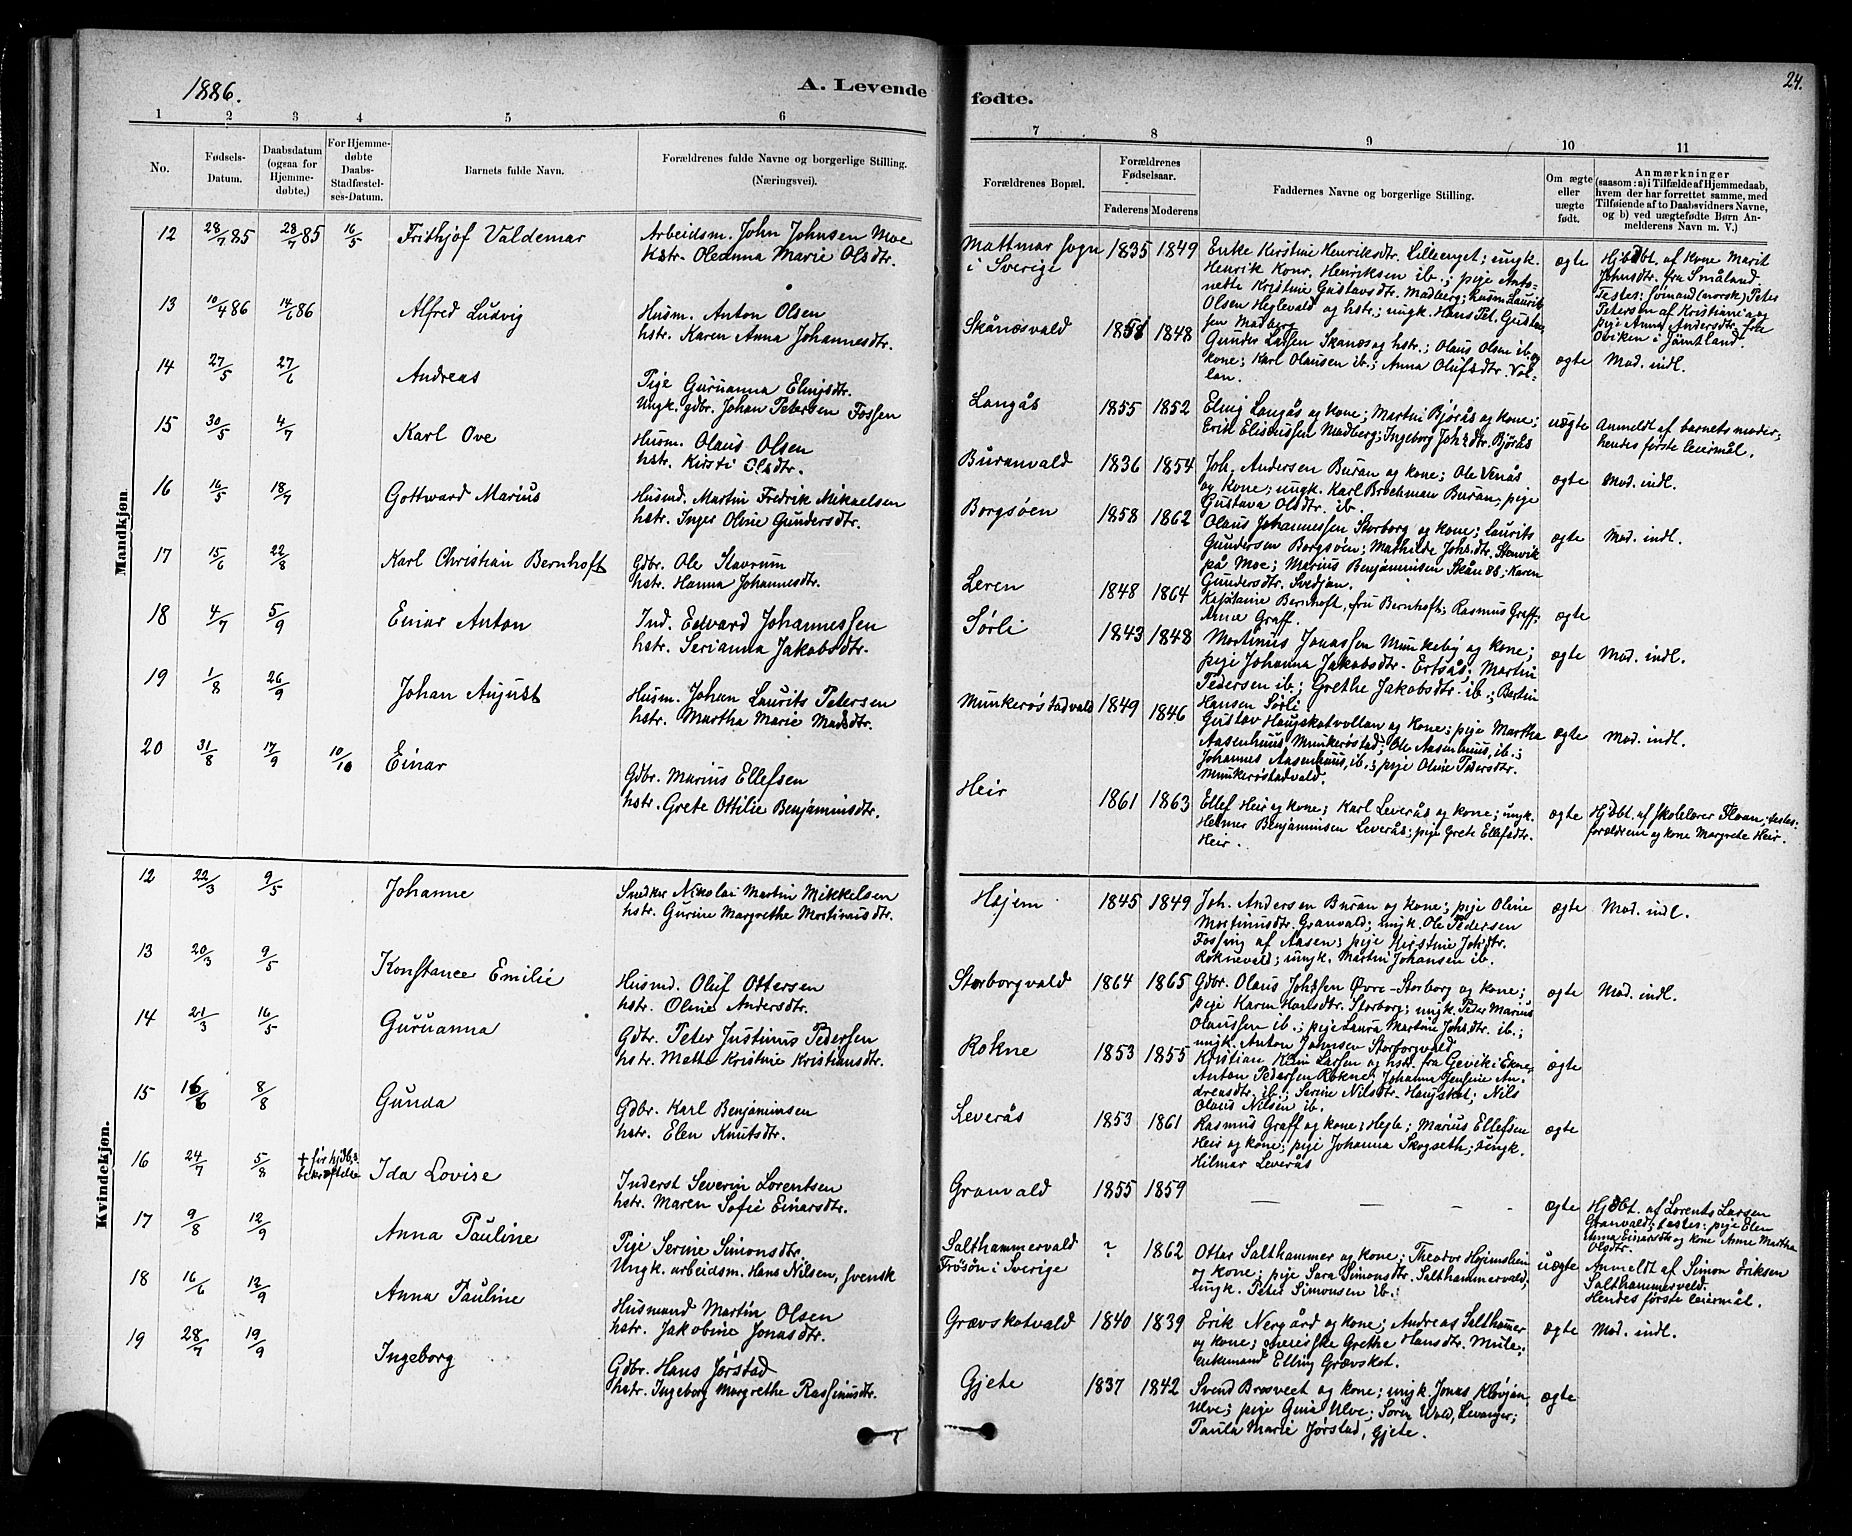 1886.
A. Levende
fødte.
24.
1 2 3 4 5 6
7 8 9 10 11
No.
Fødsels-
Datum.
Daabsdatum
(ogsaa for
Hjemme-
døbte.)
For Hjemme-
døbte
Daabs-
Stadfæstel-
ses-Datum.
Barnets fulde Navn.
Forældrenes fulde Navne og borgerlige Stilling.
(Næringsvei).
Forældrenes Bopæl.
Forældrenes
Fødselsaar.
Faderens Moderens
Faddernes Navne og borgerlige Stilling.
Om ægte
eller
uægte
født.
Anmærkninger
(saasom: a) i Tilfælde af Hjemmedaab,
hvem der har forrettet samme, med
Tilføiende af to Daabsvidners Navne,
og b) ved uægtefødte Børn An-
melderens Navn m. V.)
Mandkjøn.
12 28/7 85 28/7 85 16/5 Frithjof Valdemar
Arbeidsm. John Johnsen Moe
Hstr. Oleanna Marie Olsdtr.
Mattmar sogn
i Sverige
1835 1849
Enke Kirstine Henriksdtr. Lilleenget; ungk.
Henrik Konr. Henriksen ib.; pije Anto-
nette Kristine Gustavsdtr. Madberg; husm. Laurits
Olsen Heglevald og hstr.; ungk. Hans Pet. Gustav-
sen Madberg
ægte
Hjdbt. af Kone Marit
Johnsdtr. fra Småland.
Testes: Svimand (norsk) Peter
Petersen af Kristiania og
pije Anna Andersdtr. fra
Oviken i Jämtland.
13 10/4 86 14/6 86 Alfred Ludvig
Husm. Anton Olsen
hstr. Karen Anna Johannesdtr.
Skånesvald
1851 1848
Gunder Larsen Skånes og hstr.; Olaus Olsen ib. og
kone; Karl Olausen ib.; Anna Olufsdtr. Vol-
lan.
ægte
Mod. indl.
14 27/5 27/6 Andreas
Pije Guruanna Elingsdtr.
Ungk. gdbr. Johan Petersen Fossen
Langås
1855 1852
Eling Langås og kone; Martin Bjørås og kone;
Erik Elisæussen Madberg; Ingeborg Johsdtr. Bjørås
uægte
Anmeldt af barnets moder;
hendes første leiermål.
15 30/5 4/7 Karl Ove
Husm. Olaus Olsen
hstr. Kirsti Olsdtr.
Buranvald
1836 1854
Joh. Andersen Buran og kone; Ole Venås
og kone; ungk. Karl Brochman Buran, pije
Gustava Olsdtr. ib.
ægte
Mod. indl.
16 16/5 18/7 Gottward Marius
Husmd. Martin Fredrik Mikaelsen
hstr. Inger Oline Gundersdtr.
Borgsøen
1858 1862
Olaus Johannessen Storborg og kone; Laurits
Gundersen Borgsøen; Mathilde Johsdtr. Stenvik
på Moe; Marius Benjaminsen Skånes, Karen
Gundersdtr. Svedjan.
ægte
Mod. indl.
17 15/6 22/8 Karl Christian Bernhoft
Gdbr. Ole Stavrum
hstr. Hanna Johannesdtr.
Leren
1848 1864
Kaptaine Bernhoft, fru Bernhoft; Rasmus Graff.
Anna Graff.
ægte
18 4/7 5/9 Einar Anton
Ind. Edvard Johannessen
hstr. Serianna Jakobsdtr.
Sørli
1843 1848
Mortinus Jonassen Munkeby og kone;
pije Johanna Jakobsdtr. Ertsås; Martin
Pedersen ib.; Grethe Jakobsdtr. ib.; Bertin
Hansen Sørli
ægte
Mod. indl.
19 1/8 26/9 Johan August
Husm. Johan Laurits Petersen
hstr. Martha Marie Madsdtr.
Munkerøstadvald
1849 1846
Gustav Haugskotvollan og kone; pije Martha
Aasenhuus, Munkerøstad; Ole Aasenhuus, ib.;
Johannes Aasenhuus, ib.; pije Oline Pedersdtr.
Munkerøstadvald.
ægte
Mod. indl.
20 31/8 17/9 10/10 Einar
Gdbr. Marius Ellefsen
hstr. Grete Ottilie Benjaminsdtr.
Heir
1861 1863
Ellef Heir og kone; Karl Leverås og kone; ungk.
Helmer Benjaminsen Leverås; pije Grete Ellefsdtr.
Heir.
ægte
Hjdbt. af skolelærer Floan; testes:
forældrene og kone Margrete Heir.
Kvindekjøn.
12 22/3 9/5 Johanne
Snedker Nikolai Martin Mikkelsen
hstr. Gurine Margrethe Mortinusdtr.
Højem
1845 1849
Joh. Andersen Buran og kone; pije Oline
Mortinusdtr. Granvald; ungk. Ole Pedersen
Fossing af Aasen; pije Kirstine Johsdtr.
Roknevald; ungk. Martin Johansen ib.
ægte
Mod. indl.
13 20/3 9/5 Konstance Emilie
Husmd. Oluf Ottersen
hstr. Oline Andersdtr.
Storborgvald
1864 1865
Gdbr. Olaus Johssen Øvre-Storborg og kone;
pije Karen Hansdtr. Storborg; ungk. Peter Marius
Olaussen ib.; pije Laura Martine Johsdtr. ib.;
ungk. Anton Johnsen Storborgvald
ægte
Mod. indl.
14 21/3 16/5 Guruanna
Gdbr. Peter Justinus Pedersen
hstr. Mette Kristine Kristiansdtr.
Rokne
1853 1855
Kristian Larsen og hstr. fra Gevik i Ekne,
Anton Pedersen Rokne; Johanna Jensine An-
dreasdtr. ib.; Serine Nilsdtr. Haugskot; Nils
Olaus Nilsen ib.
ægte
15 16/6 8/8 Gunda
Gdbr. Karl Benjaminsen
hstr. Elen Knutsdtr.
Leverås
1853 1861
Rasmus Graff og kone; Hegle; Marius Ellefsen
Heir og kone; pije Johanna Skogseth; ungk.
Hilmar Leverås
ægte
16 24/7 5/8 † før hjdb.s
bekræftelse Ida Lovise
Inderst Severin Lorentsen
hstr. Maren Sofie Einarsdtr.
Granvald
1855 1859
— — - -
ægte
Hjdbt. af Lorents Larsen
Granvald; testes: pije Elen
Anna Einarsdtr. og kone Anne Martha
Olsdtr.
17 9/8 12/9 Anna Pauline
Pije Serine Simonsdtr.
Ungk. arbeidsm. Hans Nilsen, svensk
Salthammervald
Frösön i Sverige
? 1862
Otter Salthammer og kone; Theodor Højemsheim
og kone; pije Sara Simonsdtr. Salthammervald;
ungk. Peter Simonsen ib.
uægte
Anmeldt af Simon Eriksen
Salthammervald.
Hendes første leiermål.
18 16/6 12/9 Anna Pauline
Husmand Martin Olsen
hstr. Jakobine Jonasdtr.
Grævskotvald
1840 1839
Erik Nergård og kone; Andreas Salthamer
og kone; meierske Grethe Hansdtr. Mule;
enkemand Elling Grævskot.
ægte
Mod. indl.
19 28/7 19/9 Ingeborg
Gdbr. Hans Jørstad
hstr. Ingeborg Margrethe Rasmusdtr.
Gjete
1837 1842
Svend Brosveet og kone; ungk. Jonas Kløvjan
Ulve; pije Gina Ulve; Søren Wold, Levanger;
Paula Marie Jørstad, Gjete.
ægte